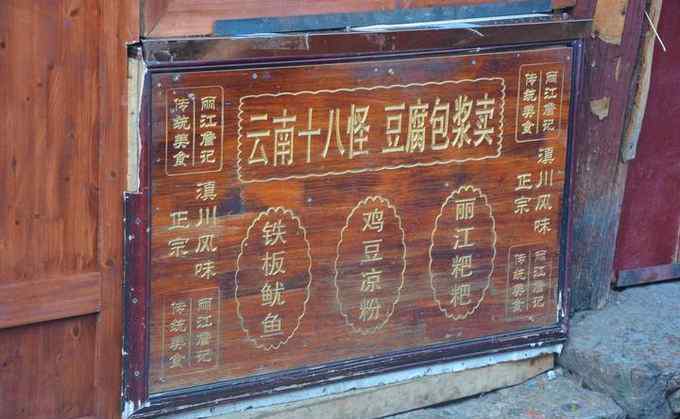 云南十八怪 豆腐包浆卖
丽江詹记
传统美食
滇川风味
正宗
丽江詹记
传统美食
铁板鱿鱼
鸡豆凉粉
丽江粑粑
丽江詹记
传统美食
滇川风味
正宗
丽江詹记
传统美食